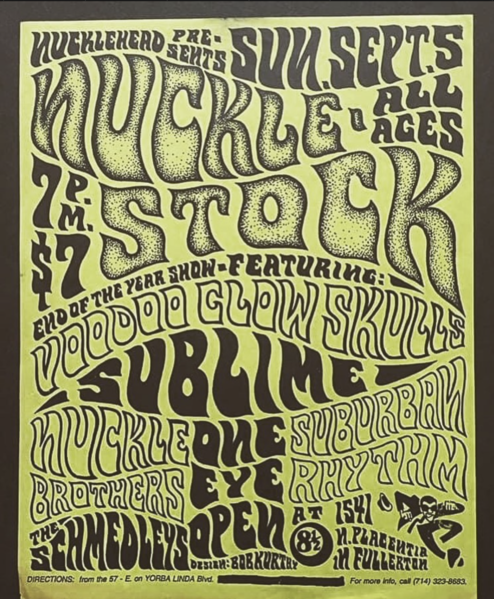 NUCKLEHEAD PRESENTS SUN. SEPT. 5
NUCKLE-STOCK
ALL AGES
7 P.M.
$7
END OF THE YEAR SHOW-FEATURING:
VOODOO GLOW SKULLS
SUBLIME
NUCKLE BROTHERS
ONE EYE OPEN
SUBURBAN RHYTHM
THE SCHMEDLEYS
AT 8½
1541 N. PLACENTIA IN FULLERTON
DESIGN: BOB KURTHY
DIRECTIONS: from the 57 - E. on YORBA LINDA Blvd.
For more info, call (714) 323-8683.